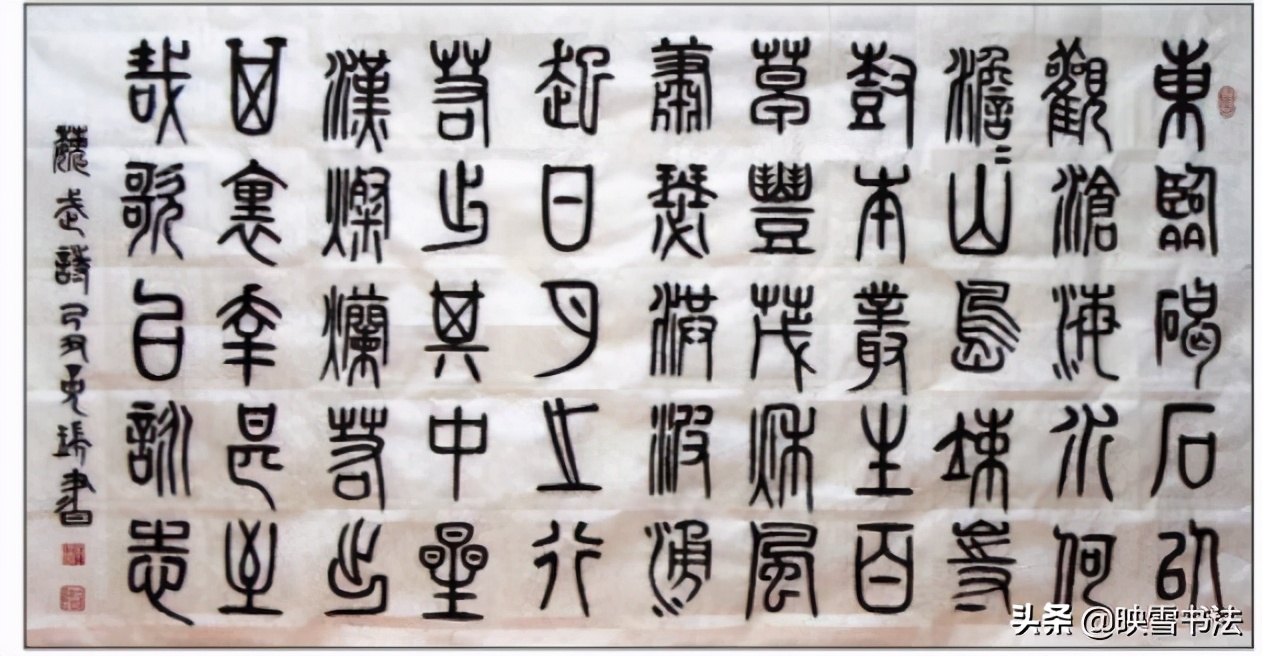 東臨碣石以
觀滄海水何
澹=山島竦峙
樹本叢生百
草豐茂秋風
蕭瑟洪波涌
起日月之行
若出其中星
漢燦爛若出
其裏幸甚至
哉歌以詠志
魏武詩丑書
头条 @映雪书法